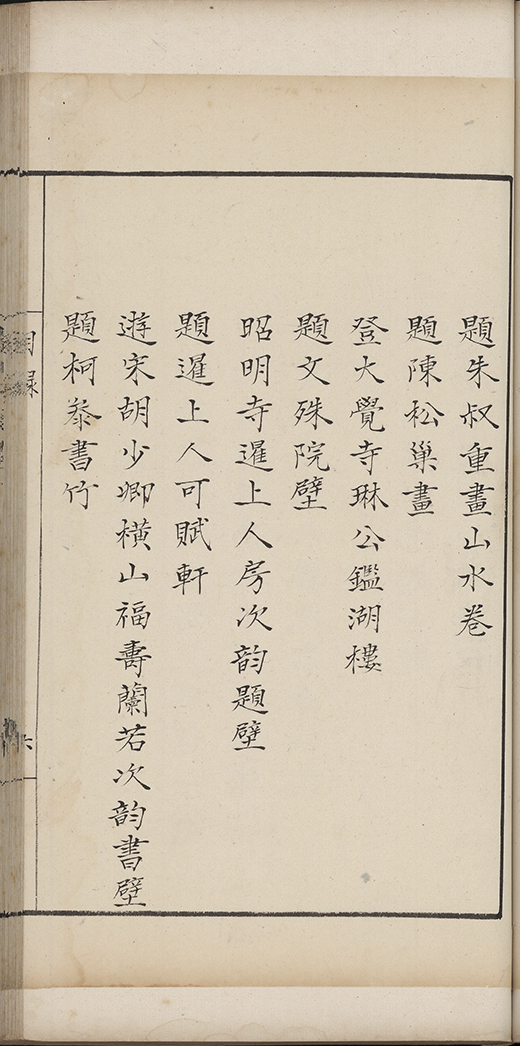 題朱叔重畫山水卷
題陳松巢畫
登大覺寺琳公鑑湖樓
題文殊院壁
昭明寺暹上人房次韵題壁
題暹上人可賦軒
遊宋胡少卿橫山福壽蘭若次韵書壁
題柯叅書竹
目録
六